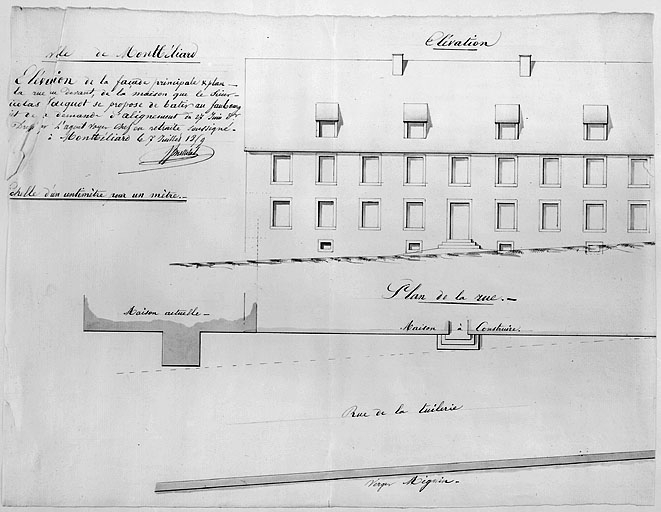 ville de Montbéliard
Elévation
Elévation de la façade principale & plan
la rue au devant, de la maison que le Sieur
colas Jacquot se propose de batir au faubourg
de demande d'alignement du 27 Juin
par L'agent voyer chef en retraite Soussigné
à Montbéliard le 7 Juillet
Echelle d'un centimètre pour un mètre.
Plan de la rue.
Maison actuelle
Maison à Construire.
Rue de la tuilerie
Verger Mégnin